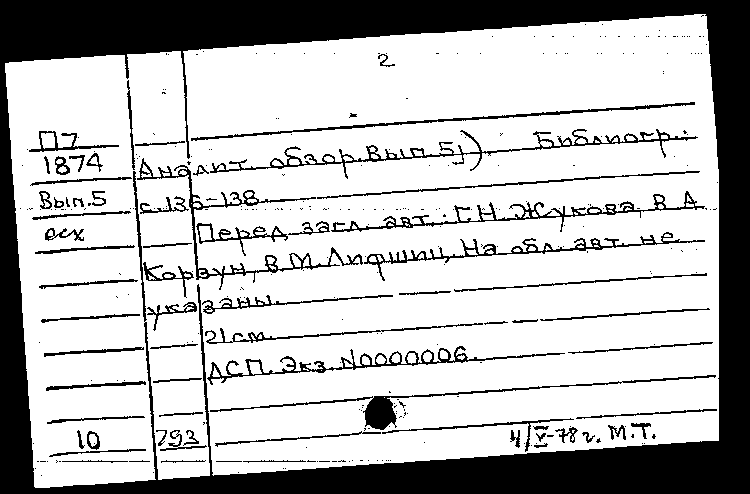 2
П7
1874
Вып.5
осх
Аналит. обзор. Вып. 5;). Библиогр.:
с. 136-138.
Перед загл. авт.: Г.Н. Жукова, В.А.
Корзун, В.М. Лифшиц. На обл. авт. не
указаны.
21 см.
ДСП. Экз. N0000006.
10 793 4/V-78 г. М.Т.